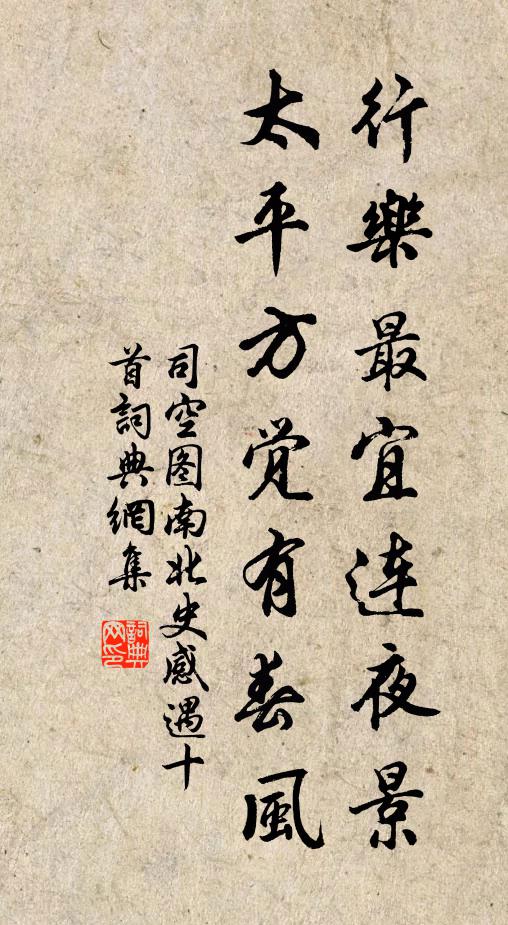 行樂最宜连夜景
太平方觉有春風
司空图南北史感遇十
首詞典網集
詞典网印